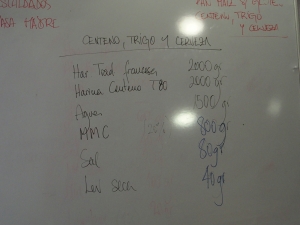 ESCALDADOS
MASA MADRE
PAN MAIZ Y
CENTENO, TRIGO
Y CERVEZA
CENTENO, TRIGO Y CERVEZA
Har Trad francesa 2000 gr
Harina Centeno T80 2000 gr
Agua 1500 gr
MMC 800 gr
Sal 80 gr
Lev seca 40 gr